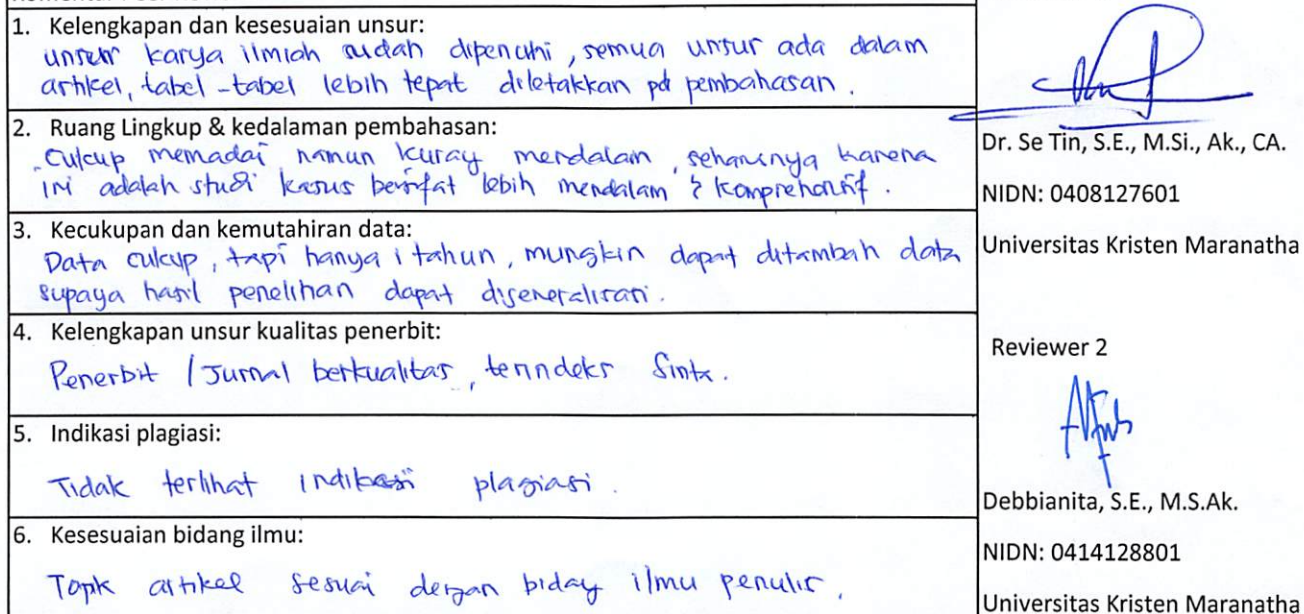 1. Kelengkapan dan kesesuaian unsur:
unsur karya ilmiah sudah dipenuhi, semua unsur ada dalam
artikel, tabel-tabel lebih tepat diletakkan pd pembahasan.
2. Ruang Lingkup & kedalaman pembahasan:
Cukup memadai namun kurang mendalam, seharusnya karena
ini adalah studi kasus bersifat lebih mendalam & komprehensif.
3. Kecukupan dan kemutahiran data:
Data cukup, tapi hanya 1 tahun, mungkin dapat ditambah data
supaya hasil penelitian dapat digeneralisasi.
4. Kelengkapan unsur kualitas penerbit:
Penerbit / Jurnal berkualitas, terindeks Sinta.
5. Indikasi plagiasi:
Tidak terlihat indikasi plagiasi.
6. Kesesuaian bidang ilmu:
Topik artikel sesuai dengan bidang ilmu penulis.
Dr. Se Tin, S.E., M.Si., Ak., CA.
NIDN: 0408127601
Universitas Kristen Maranatha
Reviewer 2
Debbianita, S.E., M.S.Ak.
NIDN: 0414128801
Universitas Kristen Maranatha